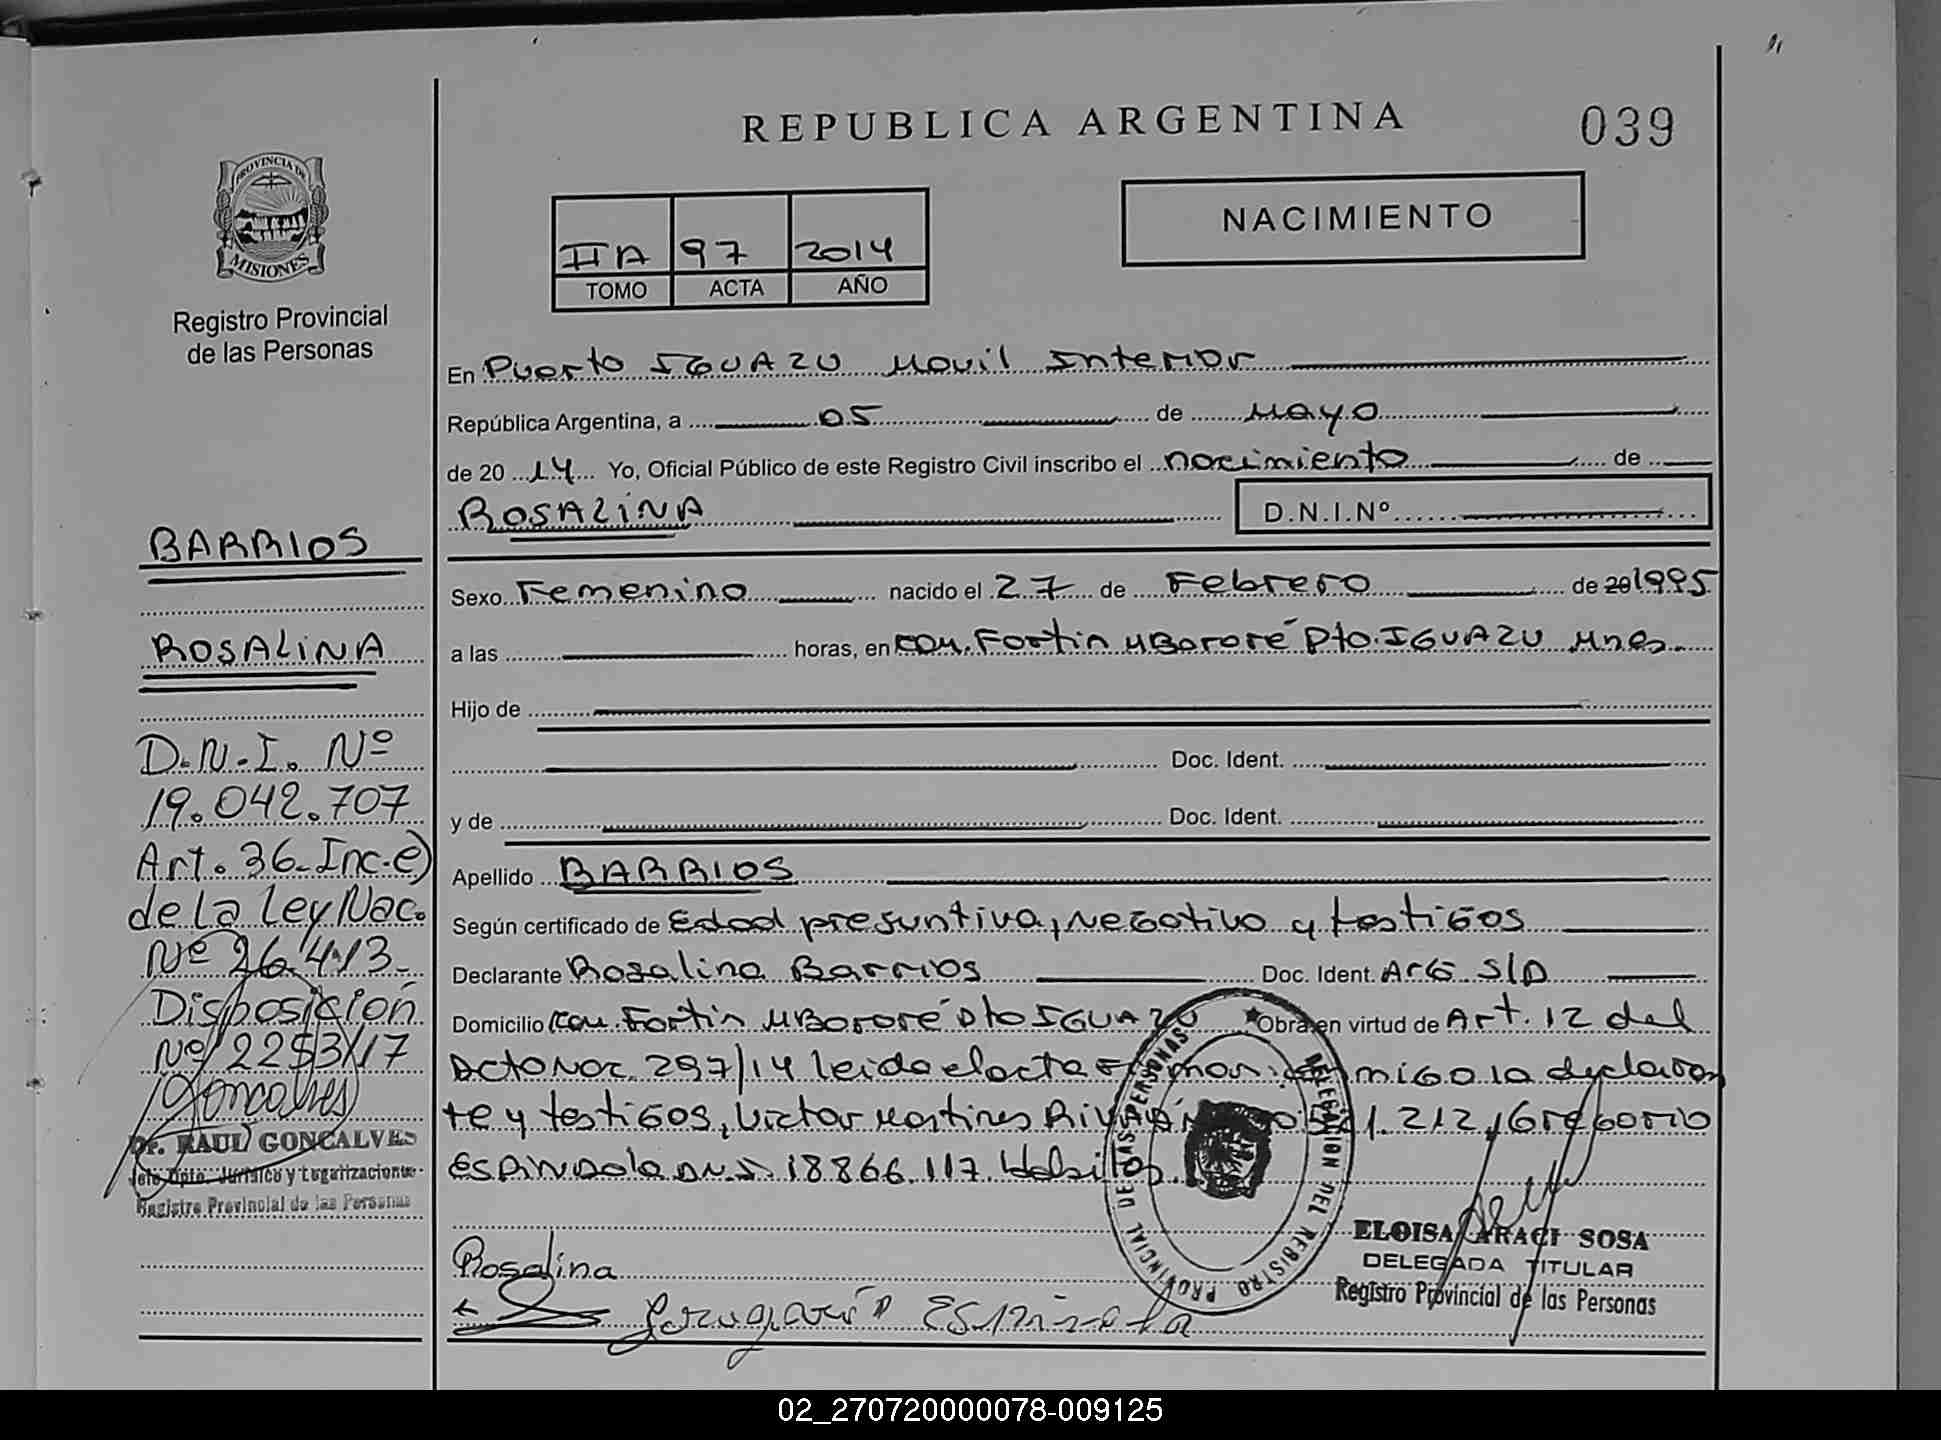 REPUBLICA ARGENTINA
039
PROVINCIA DE
MISIONES
Registro Provincial
de las Personas
IIA 97 2014
TOMO ACTA AÑO
NACIMIENTO
En Puerto IGUAZU Movil Interior
República Argentina, a 05 de Mayo
de 20 14 Yo, Oficial Público de este Registro Civil inscribo el nacimiento de
ROSALINA D.N.I.Nº
Sexo Femenino nacido el 27 de Febrero de 20 1995
a las horas, en com. Fortin MBororé Pto. IGUAZU Mnes.
Hijo de
Doc. Ident.
y de Doc. Ident.
Apellido BARRIOS
Según certificado de Edad presuntiva, Negativo y testigos
Declarante Rosalina Barrios Doc. Ident. ArG S/D
Domicilio com. Fortin MBororé Pto IGUAZU Obra en virtud de Art. 12 del
Dcto Nac. 297/14 leido el acta Firman conmigo la declaran
te y testigos, Victor Martines 1.212, Gregorio
ESPINDola D.N.I 18866.117. Habiles.
BARRIOS
ROSALINA
D.N.I. Nº
19.042.707
Art. 36-Inc.e)
de la Ley Nac.
Nº 26.413-
Disposición
Nº 2253/17
Goncalves
Dr. RAUL GONCALVES
Jefe Dpto. Jurisico y Legalizaciones
Registro Provincial de las Personas
Rosalina
DELEGACION DEL REGISTRO PROVINCIAL DE LAS PERSONAS
ELOISA ARACI SOSA
DELEGADA TITULAR
Registro Provincial de las Personas
02_270720000078-009125